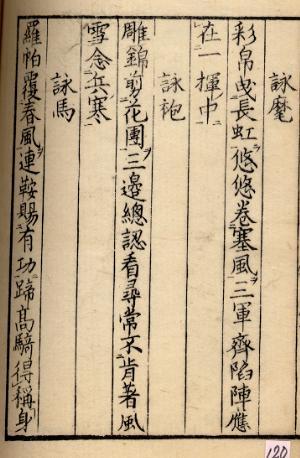 詠麾
彩帛曵長虹悠悠卷塞風三軍齊陷陣應
在一揮中
詠袍
雕錦剪花團三邊總認看尋常不肯著風
雪念兵寒
詠馬
羅帕覆春風連鞍賜有功蹄高騎得稱身
120